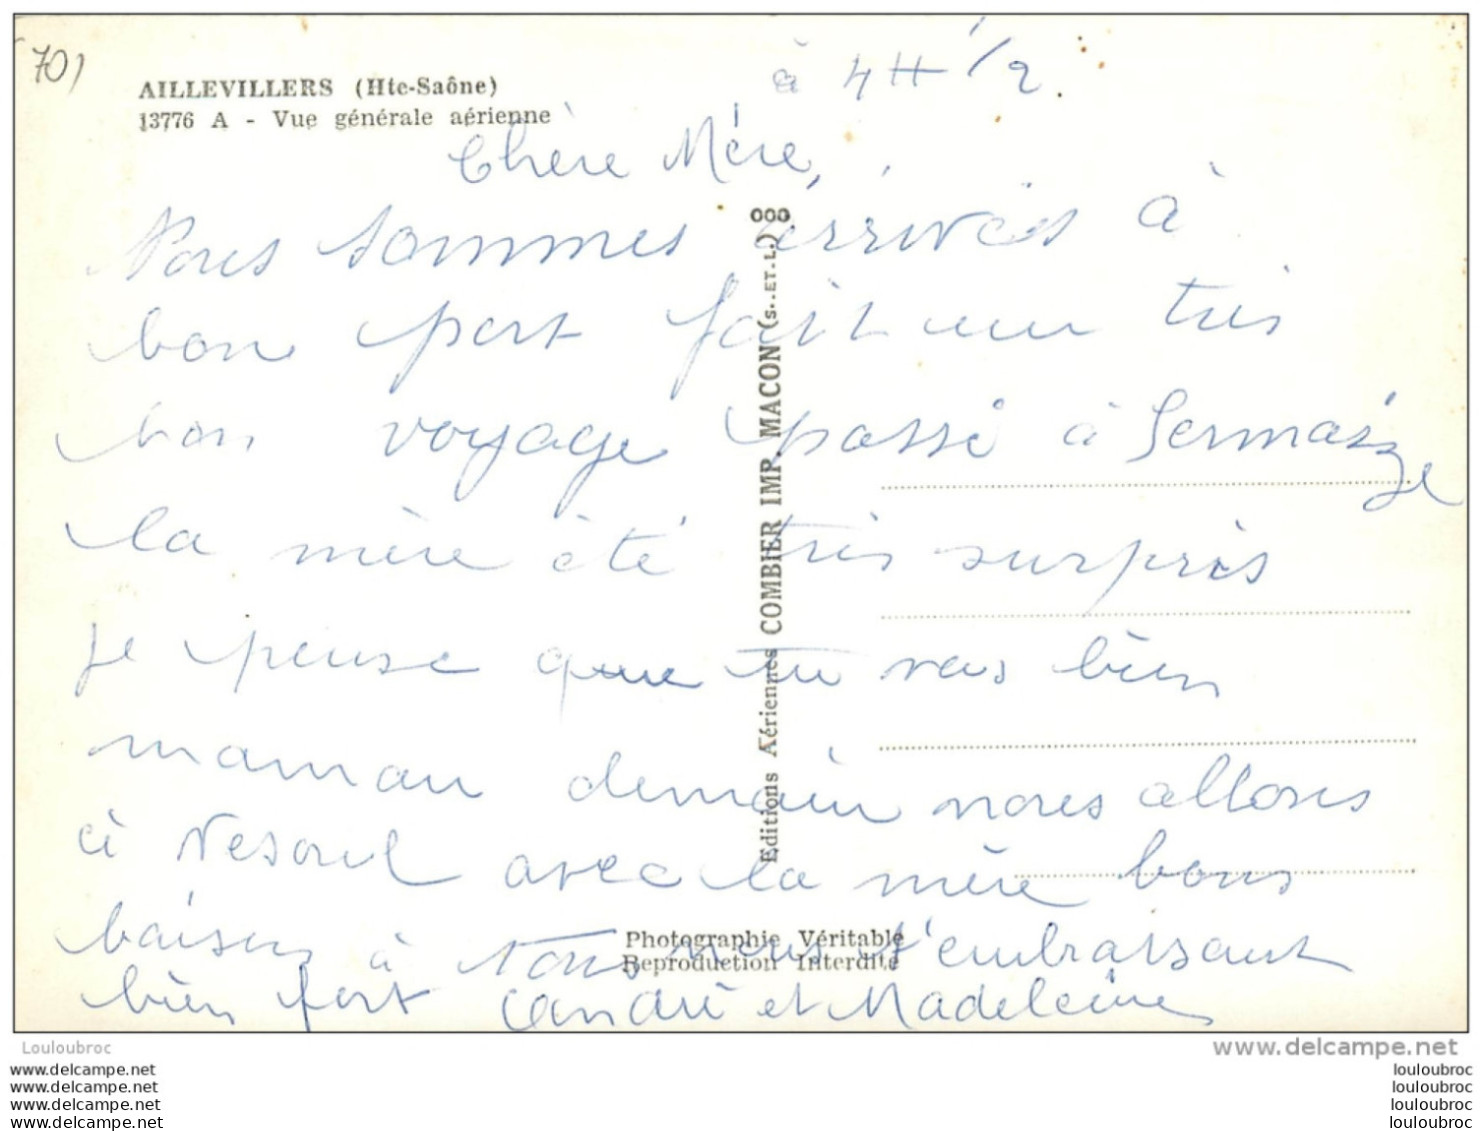 70)
AILLEVILLERS (Hte-Saône)
13776 A - Vue générale aérienne
à 4H 1/2.
Chère Mère,
Nous sommes arrivés à
bon port fait un très
bon voyage passé à Sermaize
la mère été très surpris
je pense que tu vas bien
maman demain nous allons
à Vesoul avec la mère bons
baisers à tous nous t'embrassant
bien fort André et Madeleine
Editions Aériennes COMBIER IMP. MACON (S.-ET-L.) OOO
Photographie Véritable
Reproduction Interdite
Louloubroc
www.delcampe.net
www.delcampe.net
www.delcampe.net
www.delcampe.net
www.delcampe.net
louloubroc
louloubroc
louloubroc
louloubroc